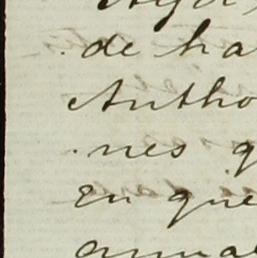 de ha
Antho
nes q
en que